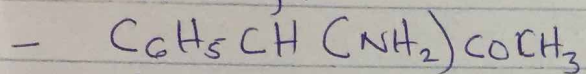 - C6H5CH(NH2)COCH3